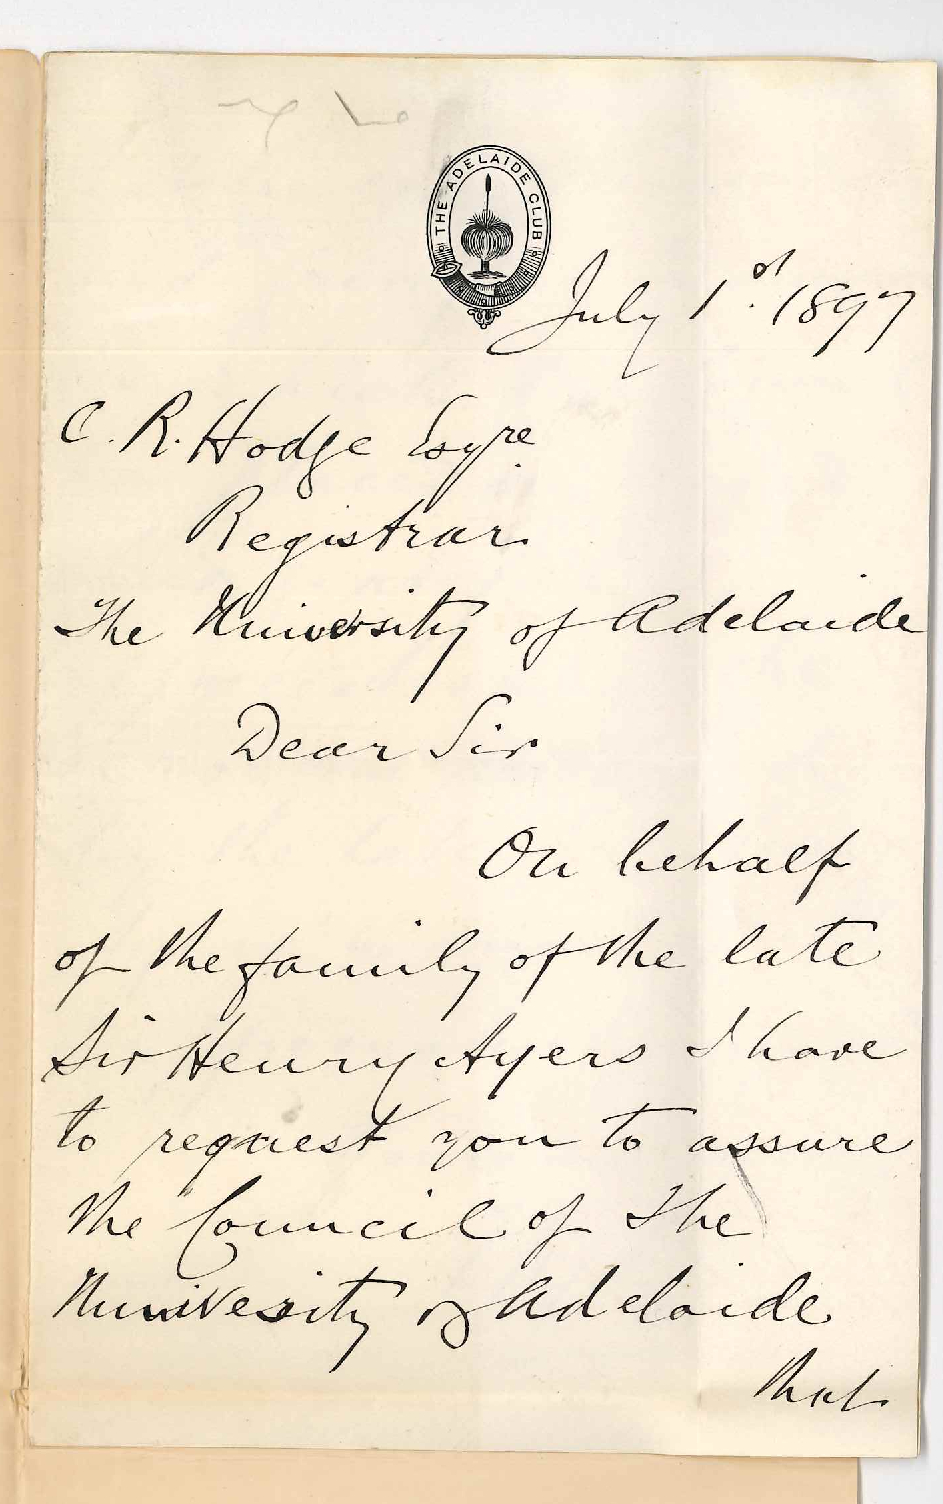 THE ADELAIDE CLUB
July 1st. 1897
C. R. Hodge Esqre
Registrar
The University of Adelaide
Dear Sir
On behalf
of the family of the late
Sir Henry Ayers I have
to request you to assure
the Council of The
University of Adelaide
that